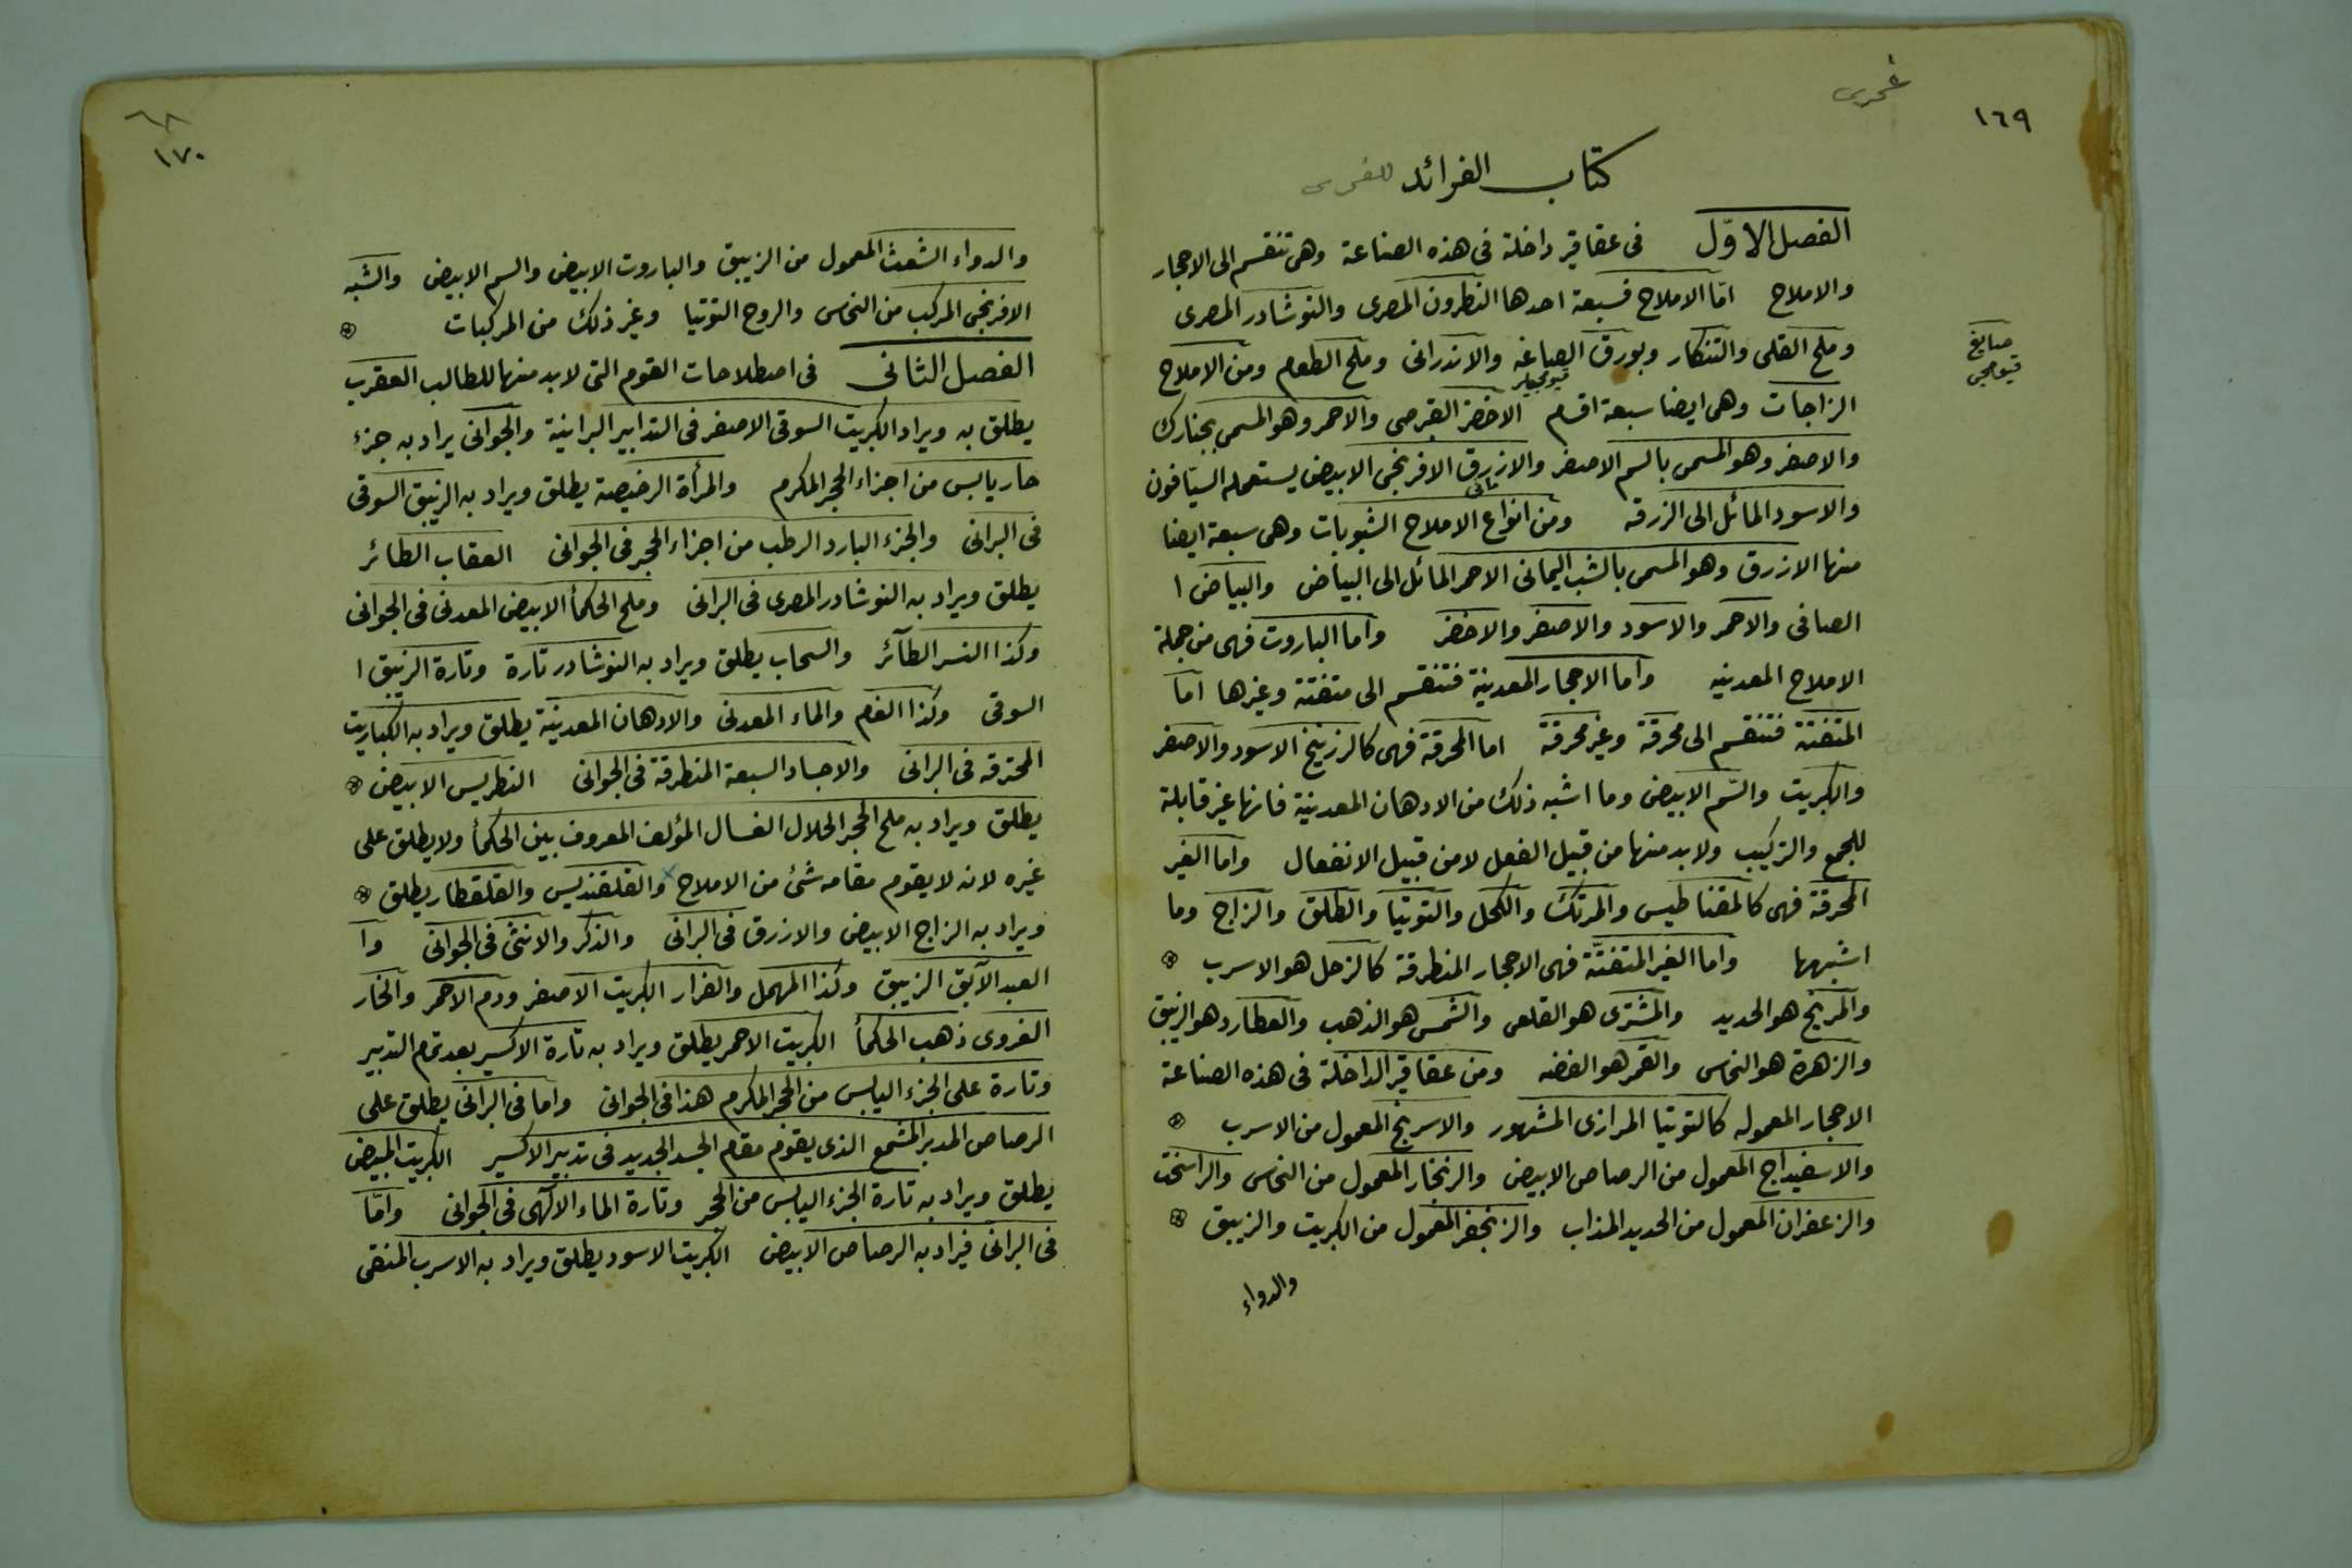 ١٦٩
كتاب الفرائد
الفصل الاوّل فى عقاقير داخلة فى هذه الصناعة وهى تنقسم الى الاحجار
والاملاح امّا الاملاح فسبعة احدها النطرون المصرى والنوشادر المصرى
وملح القلى والتنكار وبورق الصباغه والاندرانى وملح الطعام ومن الاملاح
صايغ
قيومجى
الزاجات وهى ايضا سبعة اقسام الاخضر القبرصى والاحمر وهو المسمى
والاصفر وهو المسمى بالسم الاصفر والازرق الافرنجى الابيض يستعمله السيّافون
والاسود المائل الى الزرقه ومن انواع الاملاح الشبوبات وهى سبعة ايضا
منها الازرق وهو المسمى بالشب اليمانى الاحمر المائل الى البياض والبياض ا
الصافى والاحمر والاسود والاصفر والاخضر واما الباروت فهى من جملة
الاملاح المعدنيه واما الاحجار المعدنية فتنقسم الى متفتتة وغيرها اما
المتفتتة فتنقسم الى محرقة وغير محرقة اما المحرقة فهى كالزرنيخ الاسود والاصفر
والكبريت والسّم الابيض وما اشبه ذلك من الادهان المعدنية فانها غير قابلة
للجمع والتركيب ولابد منها من قبيل الفعل لا من قبيل الانفعال واما الغير
المحرقة فهى كالمقناطيس والمرتك والكحل والتوتيا والطلق والزاج وما
اشبهها واما الغير المتفتّتة فهى الاحجار المنطرقة كالزحل هو الاسرب
والمريخ هو الحديد والمشترى هو القلعى والشمس هو الذهب والعطارد هو الزيبق
والزهرة هو النحاس والقمر هو الفضه ومن عقاقير الداخلة فى هذه الصناعة
الاحجار المعموله كالتوتيا المرازى المشهور والاسرنج المعمول من الاسرب
والاسفيداج المعمول من الرصاص الابيض والزنجار المعمول من النحاس والراسخت
والزعفران المعمول من الحديد المذاب والزنجفر المعمول من الكبريت والزيبق
والدواء
٦٨
١٧٠
والدواء الشعث المعمول من الزيبق والباروت الابيض والسم الابيض والشبه
الافرنجى المركب من النحاس والروح التوتيا وغير ذلك من المركبات
الفصل الثانى فى اصطلاحات القوم التى لابد منها للطالب العقرب
يطلق به ويراد الكبريت السوقى الاصفر فى التدابير البرانية والجوانى يراد به جزء
حار يابس من اجزاء الحجر المكرم والمرأة الرخيصة يطلق ويراد به الزيبق السوقى
فى البرانى والجزء البارد الرطب من اجزاء الحجر فى الجوانى العقاب الطائر
يطلق ويراد به النوشادر المصرى فى البرانى وملح الحكمأ الابيض المعدنى فى الجوانى
وكذا النسر الطآئر والسحاب يطلق ويراد به النوشادر تارة وتارة الزيبق ا
السوقى وكذا الغم والماء المعدنى والادهان المعدنية يطلق ويراد به الكباريت
المحترقه فى البرانى والاجساد السبعة المنطرقة فى الجوانى النطريس الابيض
يطلق ويراد به ملح الحجر الحلال الغسال المؤلف المعروف بين الحكمأ ولا يطلق على
غيره لانه لا يقوم مقامه شئ من الاملاح والقلقنديس والقلقطار يطلق
ويراد به الزاج الابيض والازرق فى البرانى والذكر والانثى فى الجوانى وا
العبد الآبق الزيبق وكذا المهمل والفرار الكبريت الاصفر ودم الاحمر والخار
الغروى ذهب الحكمأ الكبريت الاحمر يطلق ويراد به تارة الاكسير بعد تمام التدبير
وتارة على الجزء اليابس من الحجر المكرم هذا فى الجوانى واما فى البرانى يطلق على
الرصاص المدبر المشمع الذى يقوم مقام الجسد الجديد فى تدبير الاكسير الكبريت المبيض
يطلق ويراد به تارة الجزء اليابس من الحجر وتارة الماء الالهى فى الجوانى وامّا
فى البرانى فيراد به الرصاص الابيض الكبريت الاسود يطلق ويراد به الاسرب المنقى